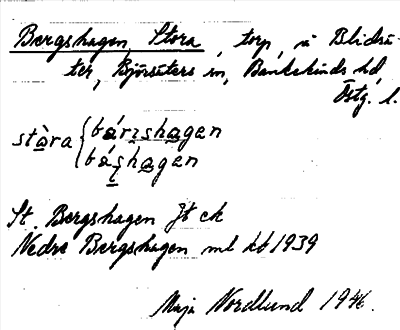 Bergshagen, Stora, torp, u Blidsä-
ter, Björsäters sn, Bankekinds hd,
Östg. l.
stòra { bárishagen
bás̨hagen
St. Bergshagen Jt ck
Nedre Bergshagen ml kb 1939
Maja Nordlund 1946.